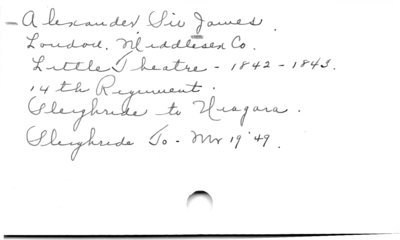 - Alexander Sir James.
London. Middlesex Co.
Little Theatre - 1842 - 1843.
14th Regiment.
Sleighride to Niagara.
Sleighride To - Mr 19 '49.